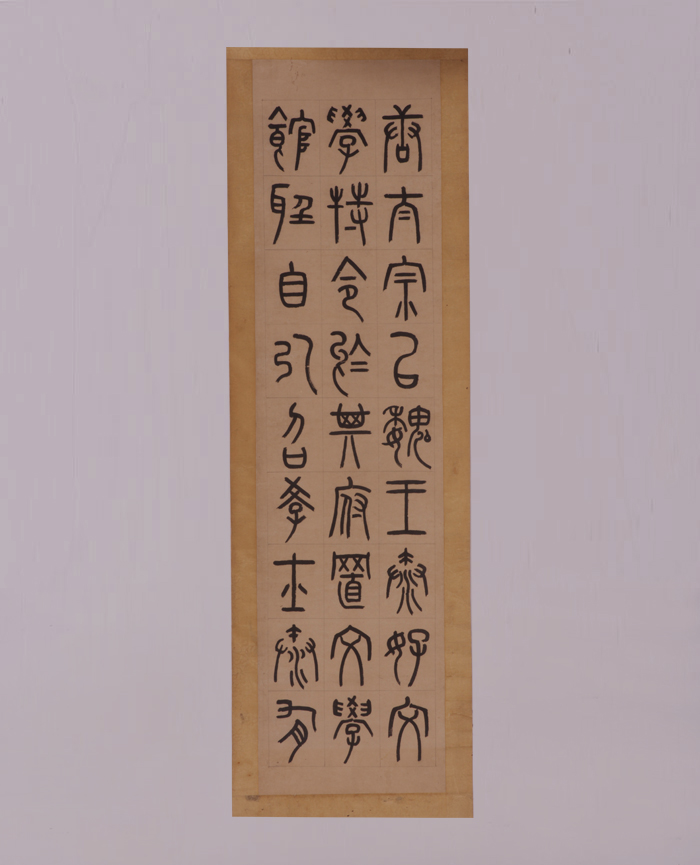 唐太宗以魏王泰好文
學特令於其府置文學
館聽自引召學士泰有